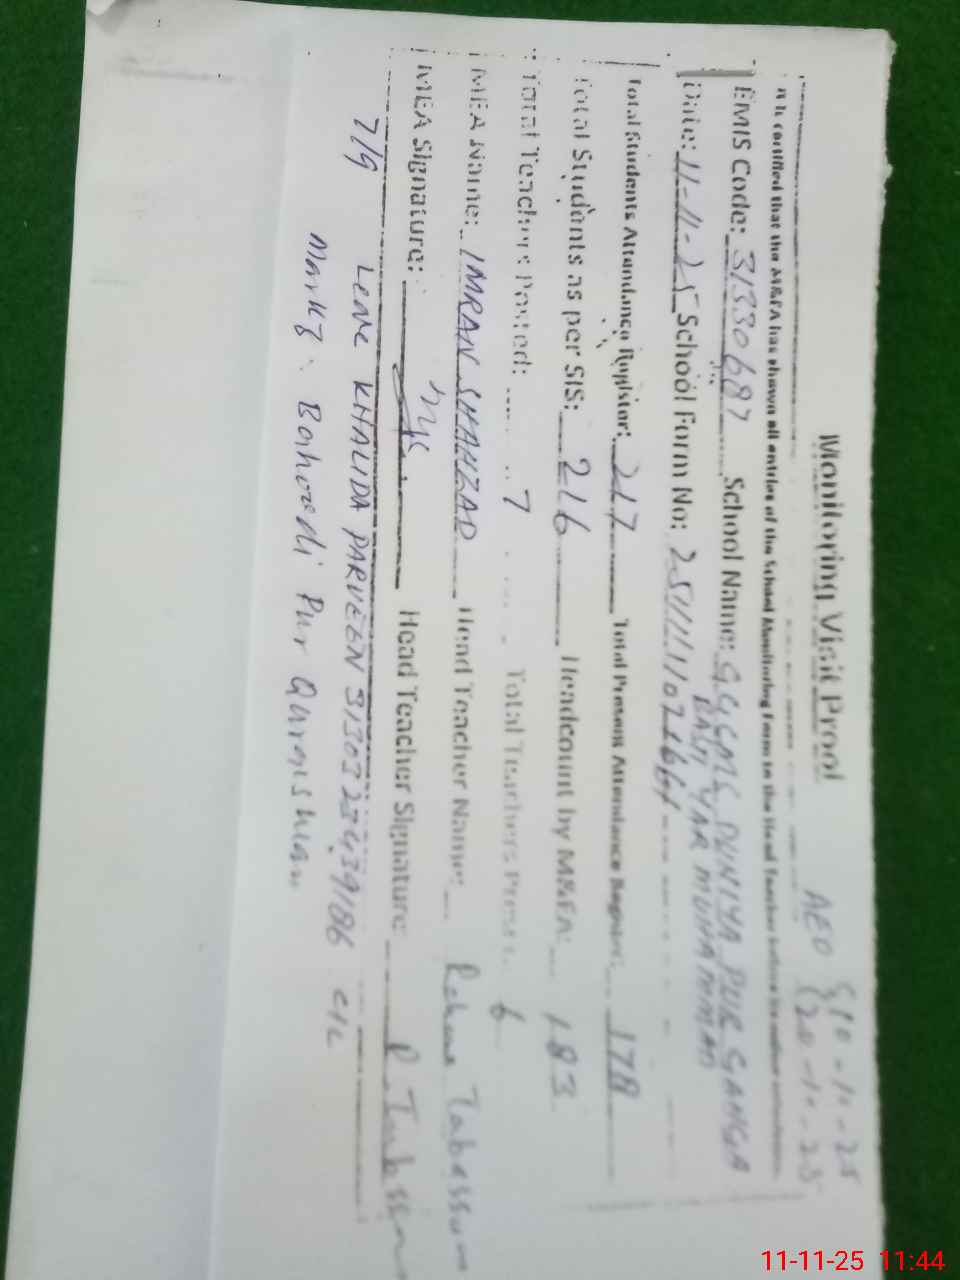 Monitoring Visit Proof
AEO { 10-11-25
{ 20-11-25
It is certified that the M&EA has shown all entries of the School Monitoring Form to the Head Teacher before
EMIS Code: 31330687 School Name: GGCMS DUNIYA PUR GANGA
BASTI YAR MUHAMMAD
Date: 11-11-25 School Form No:
Total Students Attendance Register: 217 Total Present Attendance Register: 178
Total Students as per SIS: 216 Headcount by M&EA: 183
Total Teachers Posted: 7 Total Teachers Present: 6
MEA Name: IMRAN SHAHZAD Head Teacher Name: Rehana Tabassum
MEA Signature: Head Teacher Signature:
7/9 Leave KHALIDA PARVEEN c/c
Markz. Bahoodi Pur Quraishian
11-11-25 11:44